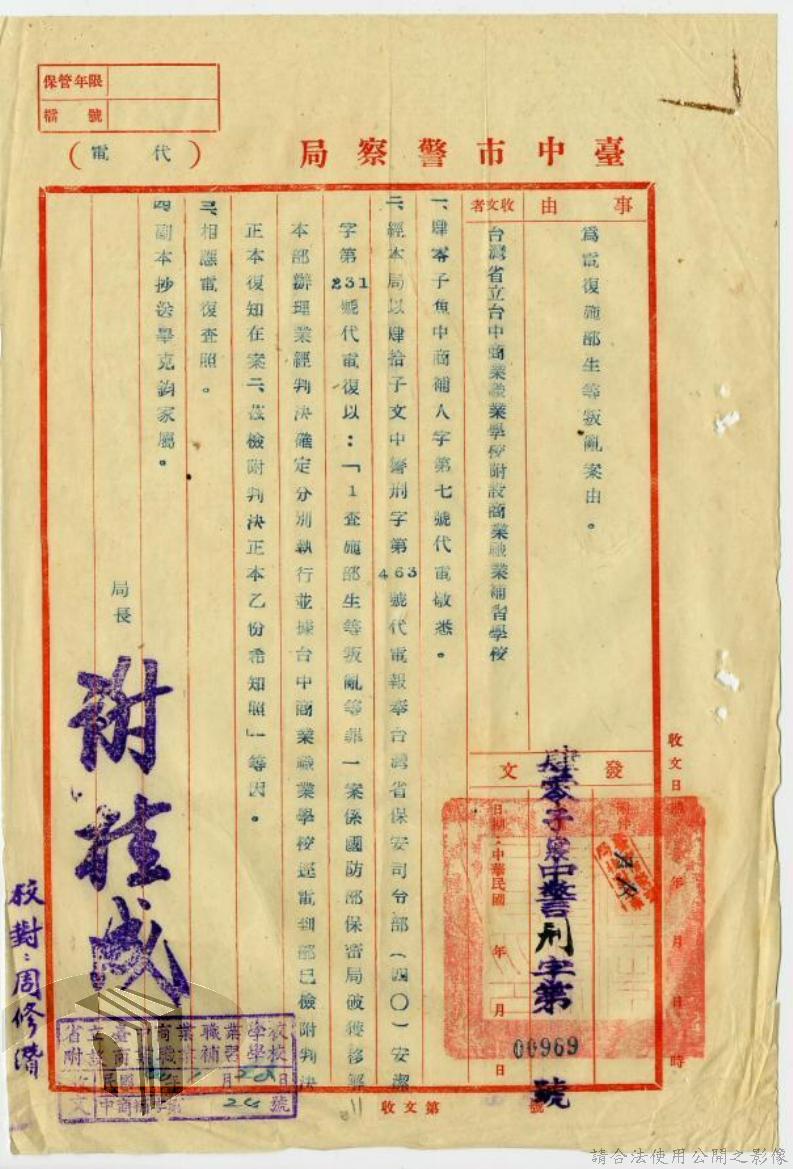 保管年限
檔號
臺中市警察局
(代電)
事由
為電復施部生等叛亂案由。
收文者
台灣省立台中商業職業學校附設商業職業補習學校
一、肆零子魚中商補人字第七號代電敬悉。
二、經本局以肆拾子文中警刑字第463號代電報奉台灣省保安司台部(四〇)安潔
字第231號代電復以:「1查施部生等叛亂等罪一案係國防部保密局破獲移解
本部辦理業經判決確定分別執行並據台中商業職業學校逕電到部已檢附判決
正本復知在案二、茲檢附判決正本乙份希知照」等因。
三、相應電復查照。
四副本抄送畢克鈞家屬。
局長
謝桂成
校對:周修濳
發文
附件
日期:中華民國 年 月 日
肆零子 中警刑字第
00969
號
收文日期 年 月 日 時
收文第 號
省立臺中商業職業學校
附設商業職業補習學校
收文
民國 年 月 日
中商補字第 號
請合法使用公開之影像